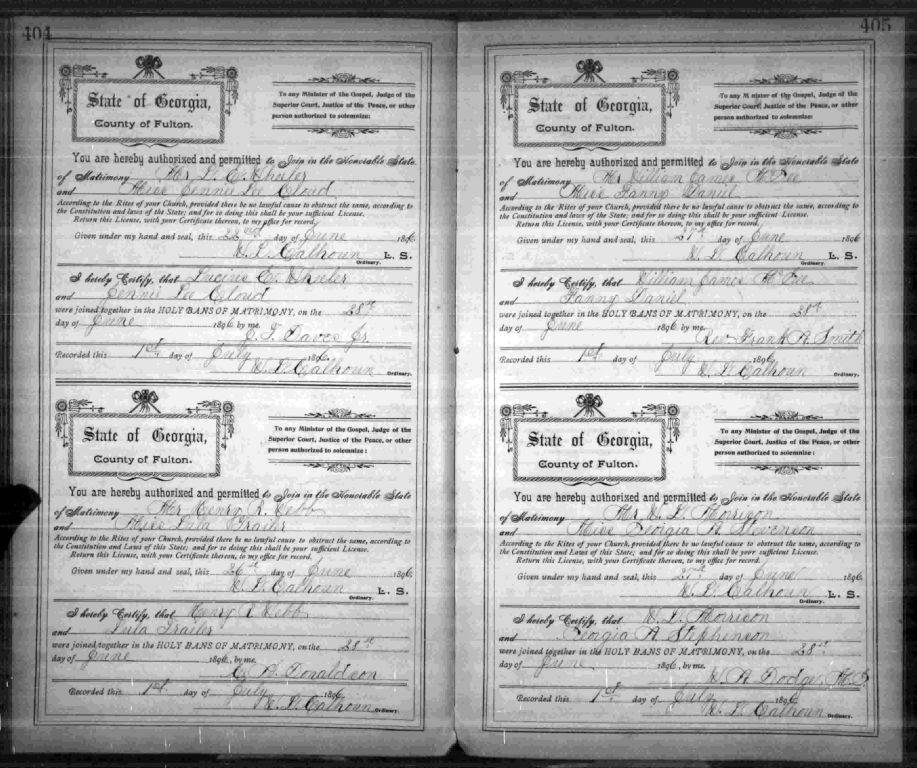 404
State of Georgia,
County of Fulton.
To any Minister of the Gospel, Judge of the
Superior Court, Justice of the Peace, or other
person authorized to solemnize:
You are hereby authorized and permitted to Join in the Honorable State
of Matrimony Mr L. C. Wheeler
and Miss Jennie Lee Cloud
According to the Rites of your Church, provided there be no lawful cause to obstruct the same, according to
the Constitution and laws of the State; and for so doing this shall be your sufficient License.
Return this License, with your Certificate thereon, to my office for record.
Given under my hand and seal, this 22nd day of June 1896
W. L. Calhoun L. S.
Ordinary.
I hereby Certify, that Lucius C. Wheeler
and Jennie Lee Cloud
were joined together in the HOLY BANS OF MATRIMONY, on the 28th
day of June 1896 by me.
Jr.
Recorded this 1st day of July 1896
W. L. Calhoun Ordinary.
State of Georgia,
County of Fulton.
To any Minister of the Gospel, Judge of the
Superior Court, Justice of the Peace, or other
person authorized to solemnize:
You are hereby authorized and permitted to Join in the Honorable State
of Matrimony Mr Henry R. Webb
and Miss Lula Frailer
According to the Rites of your Church, provided there be no lawful cause to obstruct the same, according to
the Constitution and Laws of this State; and for so doing this shall be your sufficient License.
Return this License, with your Certificate thereon, to my office for record.
Given under my hand and seal, this 26th day of June 1896
W. L. Calhoun L. S.
Ordinary.
I hereby Certify, that Henry R. Webb
and Lula Frailer
were joined together in the HOLY BANS OF MATRIMONY, on the 28th
day of June 1896, by me.
Donaldson
Recorded this 1st day of July 1896
W. L. Calhoun Ordinary.
405
State of Georgia,
County of Fulton.
To any Minister of the Gospel, Judge of the
Superior Court, Justice of the Peace, or other
person authorized to solemnize:
You are hereby authorized and permitted to Join in the Honorable State
of Matrimony Mr William James McGee
and Miss Fanny Daniel
According to the Rites of your Church, provided there be no lawful cause to obstruct the same, according to
the Constitution and laws of the State; and for so doing this shall be your sufficient License.
Return this License, with your Certificate thereon, to my office for record.
Given under my hand and seal, this 27th day of June 1896
W. L. Calhoun
Ordinary. L. S.
I hereby Certify, that William James McGee
and Fanny Daniel
were joined together in the HOLY BANS OF MATRIMONY, on the 28th
day of June 1896 by me.
Rev Frank R. Smith
Recorded this 1st day of July 1896
W. L. Calhoun Ordinary.
State of Georgia,
County of Fulton.
To any Minister of the Gospel, Judge of the
Superior Court, Justice of the Peace, or other
person authorized to solemnize:
You are hereby authorized and permitted to Join in the Honorable State
of Matrimony Mr W. L. Morrison
and Miss Georgia A. Stevenson
According to the Rites of your Church, provided there be no lawful cause to obstruct the same, according to
the Constitution and Laws of this State; and for so doing this shall be your sufficient License.
Return this License, with your Certificate thereon, to my office for record.
Given under my hand and seal, this 27th day of June 1896
W. L. Calhoun L. S.
Ordinary.
I hereby Certify, that W. L. Morrison
and Georgia A Stephenson
were joined together in the HOLY BANS OF MATRIMONY, on the 28th
day of June 1896, by me.
W. A. Dodge M. G.
Recorded this 1st day of July 1896
W. L. Calhoun Ordinary.